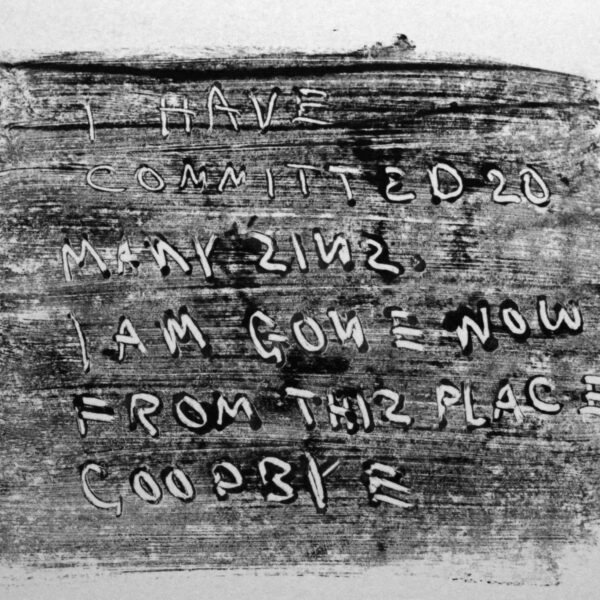 I HAVE
COMMITTED SO
MANY SINS.
I AM GONE NOW
FROM THIS PLACE
GOODBYE